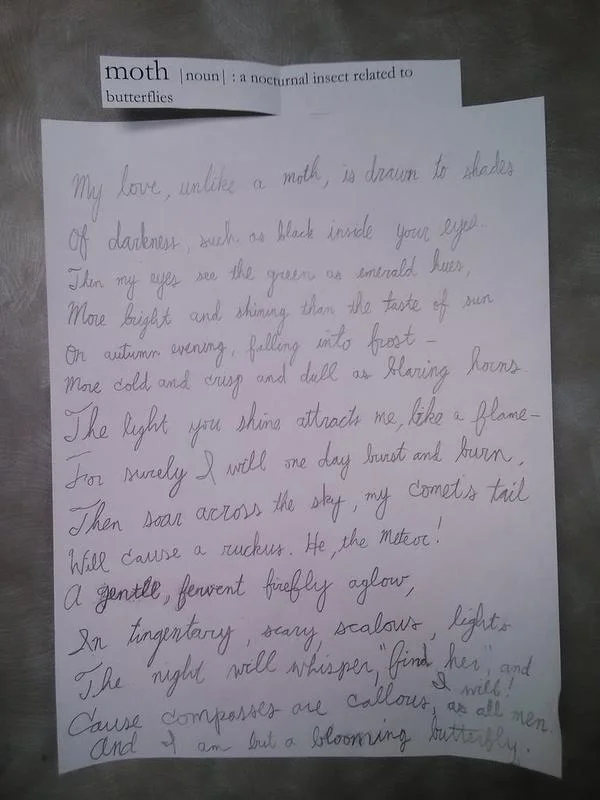 moth |noun| : a nocturnal insect related to
butterflies
My love, unlike a moth, is drawn to shades
Of darkness, such as black inside your eyes.
Then my eyes see the green as emerald hues,
More bright and shining than the taste of sun
On autumn evening, falling into frost –
More cold and crisp and dull as blaring horns.
The light you shine attracts me, like a flame–
For surely I will one day burst and burn,
Then soar across the sky, my comet's tail
Will cause a ruckus. He, the Meteor!
A gentle, fervent firefly aglow,
In tingentary, scary, scalous, lights
The night will whisper, "find her", and
I will!
Cause compasses are callous, as all men.
And I am but a blooming butterfly.